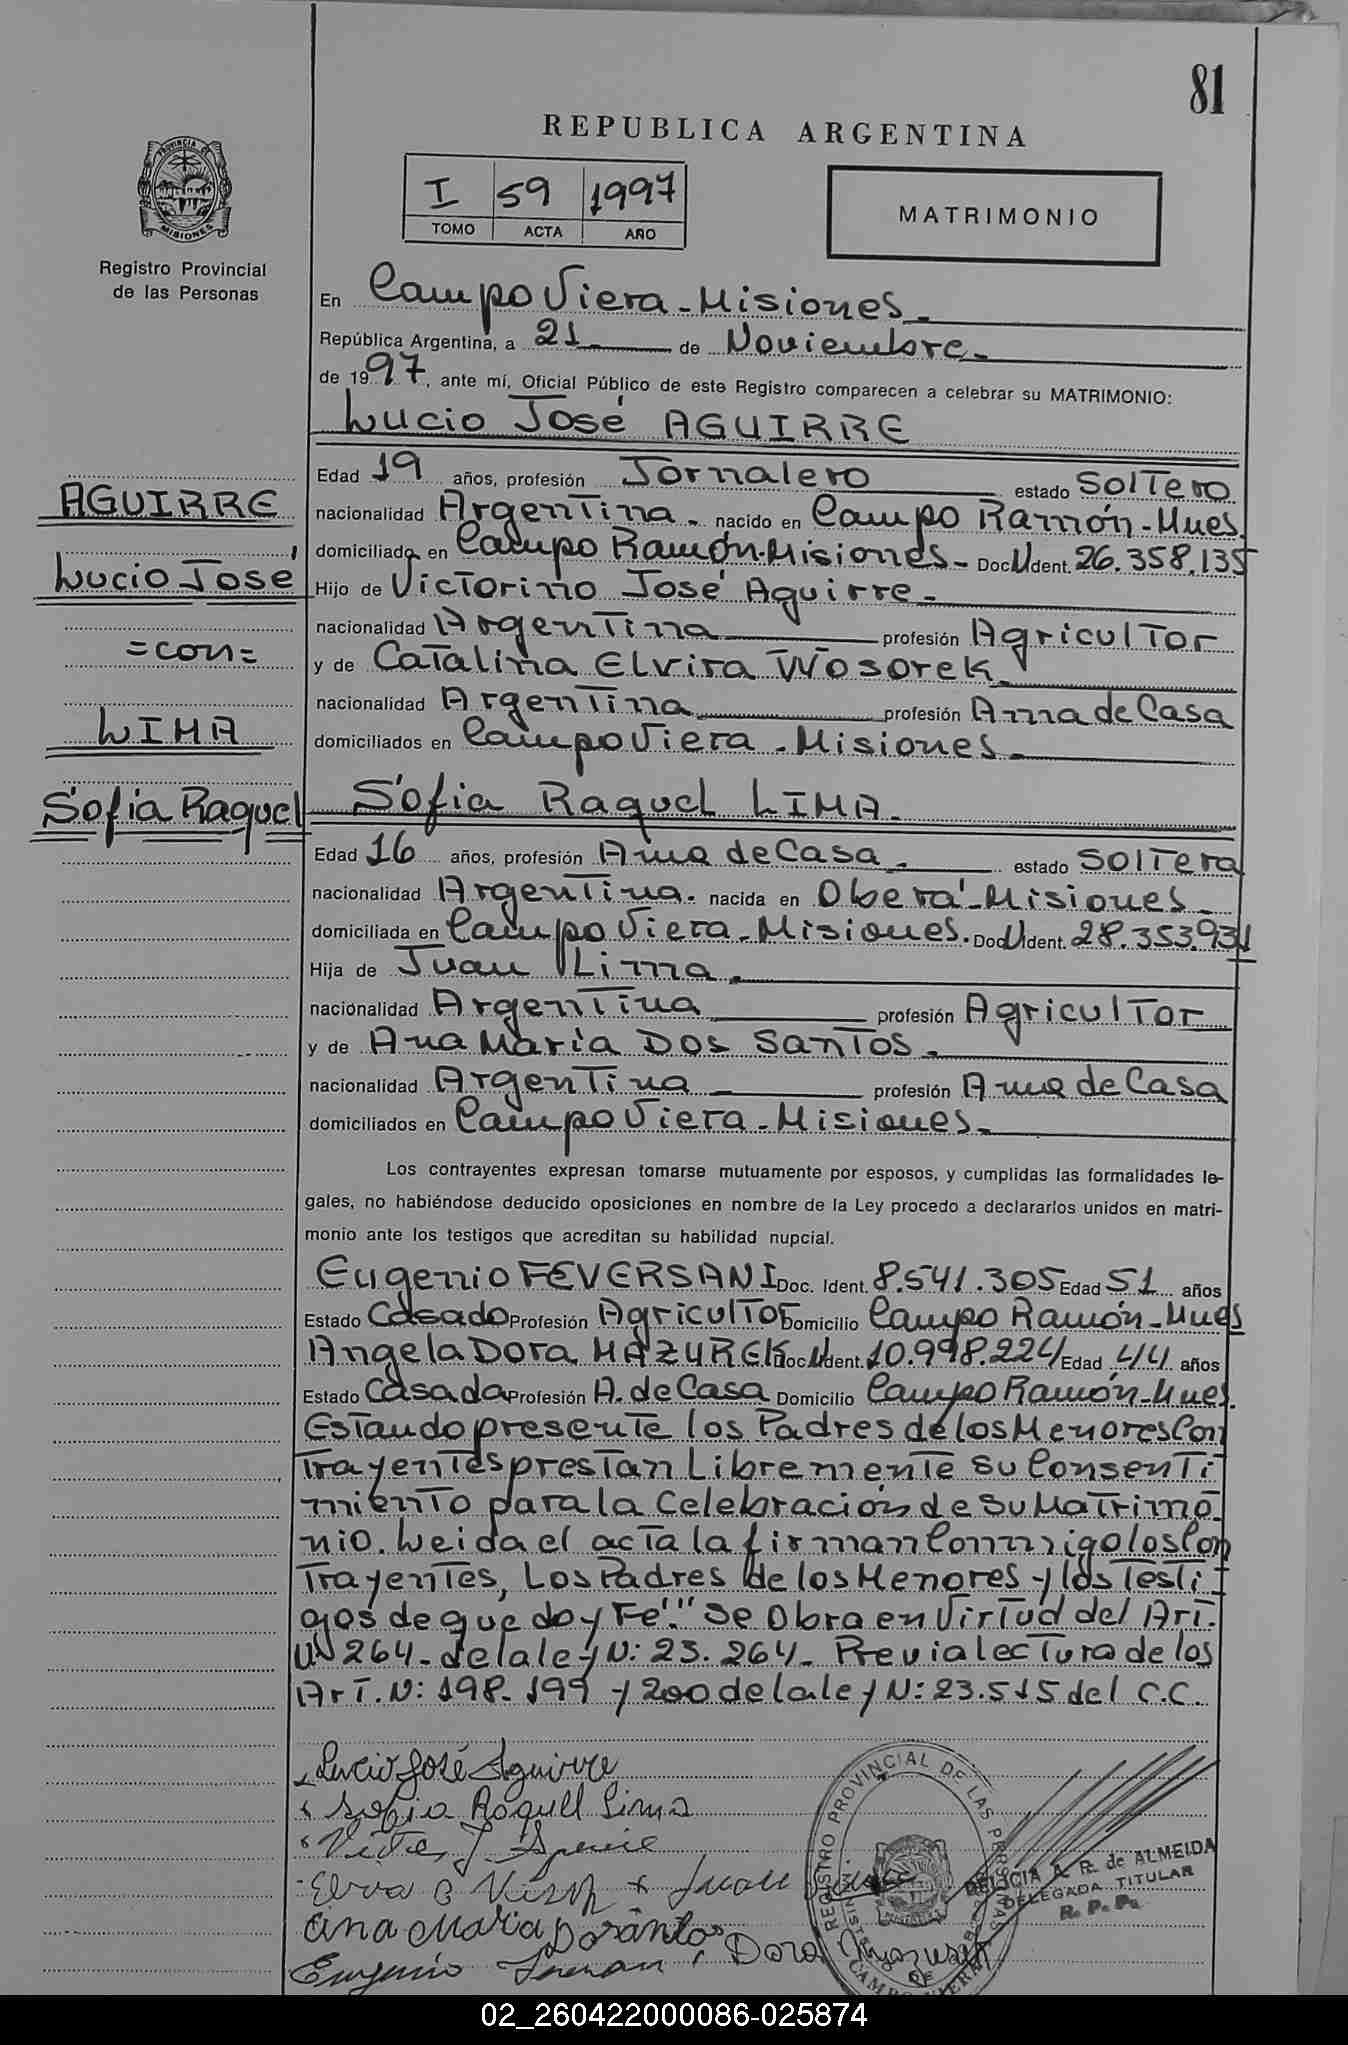 81
REPUBLICA ARGENTINA
PROVINCIA DE MISIONES
Registro Provincial
de las Personas
I 59 1997
TOMO ACTA AÑO
MATRIMONIO
En Campo Viera - Misiones.
República Argentina, a 21 de Noviembre.
de 1997, ante mí, Oficial Público de este Registro comparecen a celebrar su MATRIMONIO:
Lucio José AGUIRRE
Edad 19 años, profesión Jornalero estado Soltero
nacionalidad Argentina. nacido en Campo Ramón-Mnes.
domiciliado en Campo Ramón-Misiones - Doc. U. Ident. 26.358.135
Hijo de Victorino José Aguirre.
nacionalidad Argentina profesión Agricultor
y de Catalina Elvira Wosorek.
nacionalidad Argentina profesión Ama de Casa
domiciliados en Campo Viera - Misiones.
AGUIRRE
Lucio José
=con=
LIMA
Sofia Raquel
Sofia Raquel LIMA.
Edad 16 años, profesión Ama de Casa. estado Soltera
nacionalidad Argentina. nacida en Oberá - Misiones.
domiciliada en Campo Viera - Misiones. Doc. U. Ident. 28.353.931
Hija de Juan Lima.
nacionalidad Argentina profesión Agricultor
y de Ana Maria Dos Santos.
nacionalidad Argentina profesión Ama de Casa
domiciliados en Campo Viera - Misiones.
Los contrayentes expresan tomarse mutuamente por esposos, y cumplidas las formalidades le-
gales, no habiéndose deducido oposiciones en nombre de la Ley procedo a declararlos unidos en matri-
monio ante los testigos que acreditan su habilidad nupcial.
Eugenio FEVERSANI Doc. Ident. 8.541.305 Edad 51 años
Estado Casado Profesión Agricultor Domicilio Campo Ramón-Mnes
Angela Dora MAZUREK Doc. U. Ident. 10.998.224 Edad 44 años
Estado Casada Profesión A. de Casa Domicilio Campo Ramón-Mnes.
Estando presente los Padres de los Menores Con
Trayentes prestan Libremente su Consenti
miento para la Celebración de su Matrimo
nio. Leida el acta la firman Conmigo los Con
Trayentes, Los Padres de los Menores y los Testi-
gos de que doy Fe."" Se Obra en Virtud del Art.
Nº 264. de la ley N: 23.264. Previa lectura de los
Art. N: 198. 199 y 200 de la ley N: 23.515 del C.C.
Lucio José Aguirre
Sofia Raquell Lima
Juan
Ana Maria Dosantos
Eugenio
Dora
REGISTRO PROVINCIAL DE LAS PERSONAS
CAMPO VIERA
DELICIA A. R. de ALMEIDA
DELEGADA TITULAR
R. P. P.
02_260422000086-025874